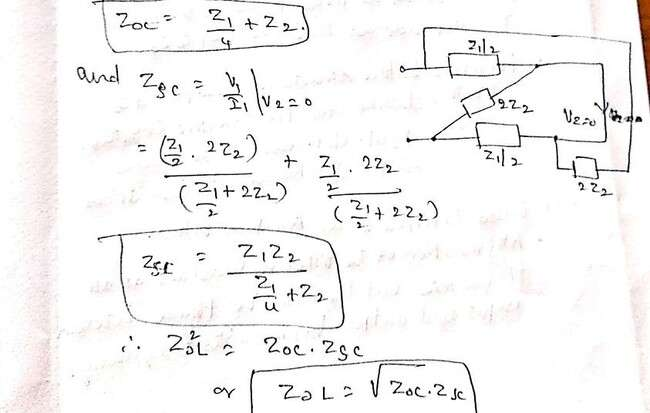 Zoc = Z1/4 + Z2.
and Zsc = V1/I1 | V2=0
= (Z1/2 · 2Z2) / (Z1/2 + 2Z2) + Z1/2 · 2Z2 / (Z1/2 + 2Z2)
Zsc = Z1Z2 / (Z1/4 + Z2)
∴ Z0L² = Zoc · Zsc
or Z0L = √Zoc·Zsc
Z1/2
2Z2
V2=0
Z1/2
2Z2